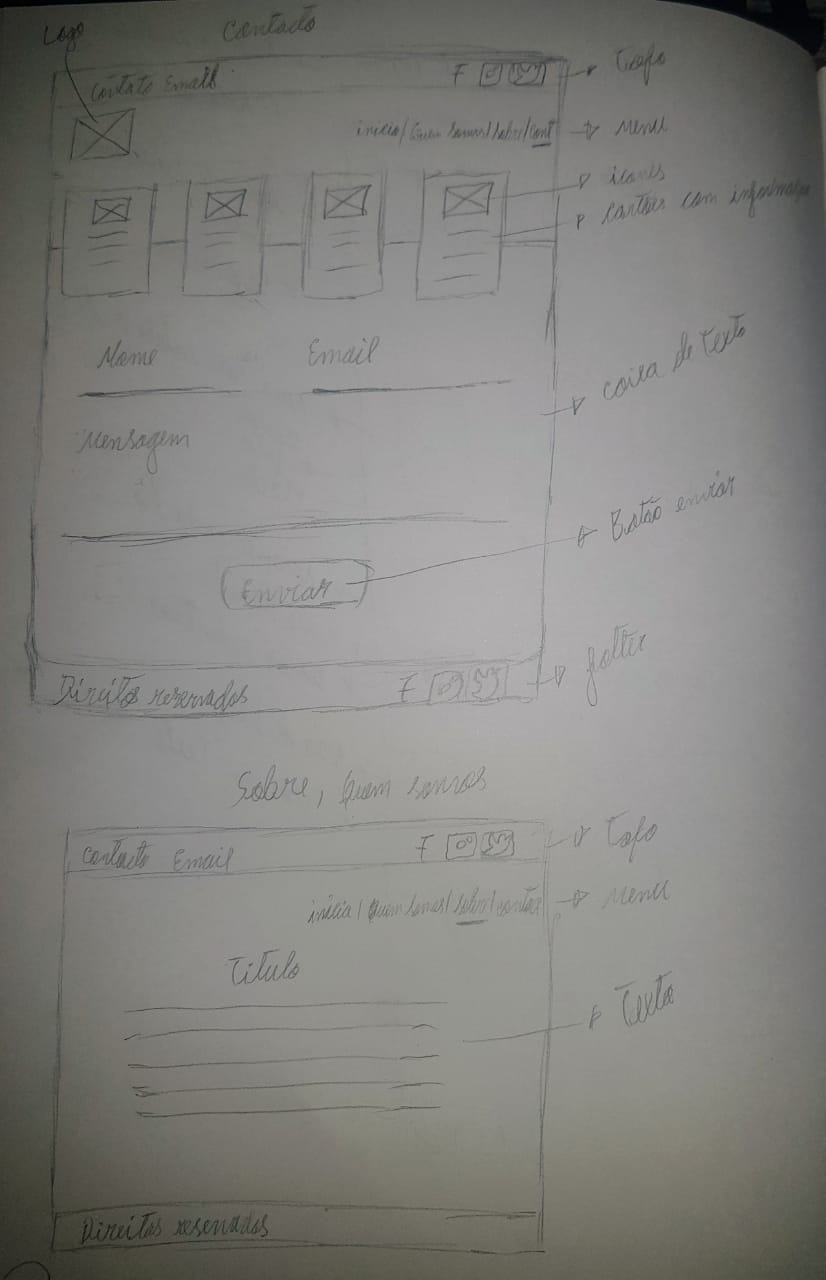 Logo
Contacto
Contato Email
F
Topo
inicio/Quem somos/sobre/cont
Menu
icones
Cartões com informação
Nome
Email
caixa de Texto
Mensagem
Botão enviar
Enviar
Direitos reservados
F
Sobre, Quem somos
Contacto Email
F
Topo
inicia/Quem somos/sobre/contac
Menu
Titulo
Texto
Direitos reservados